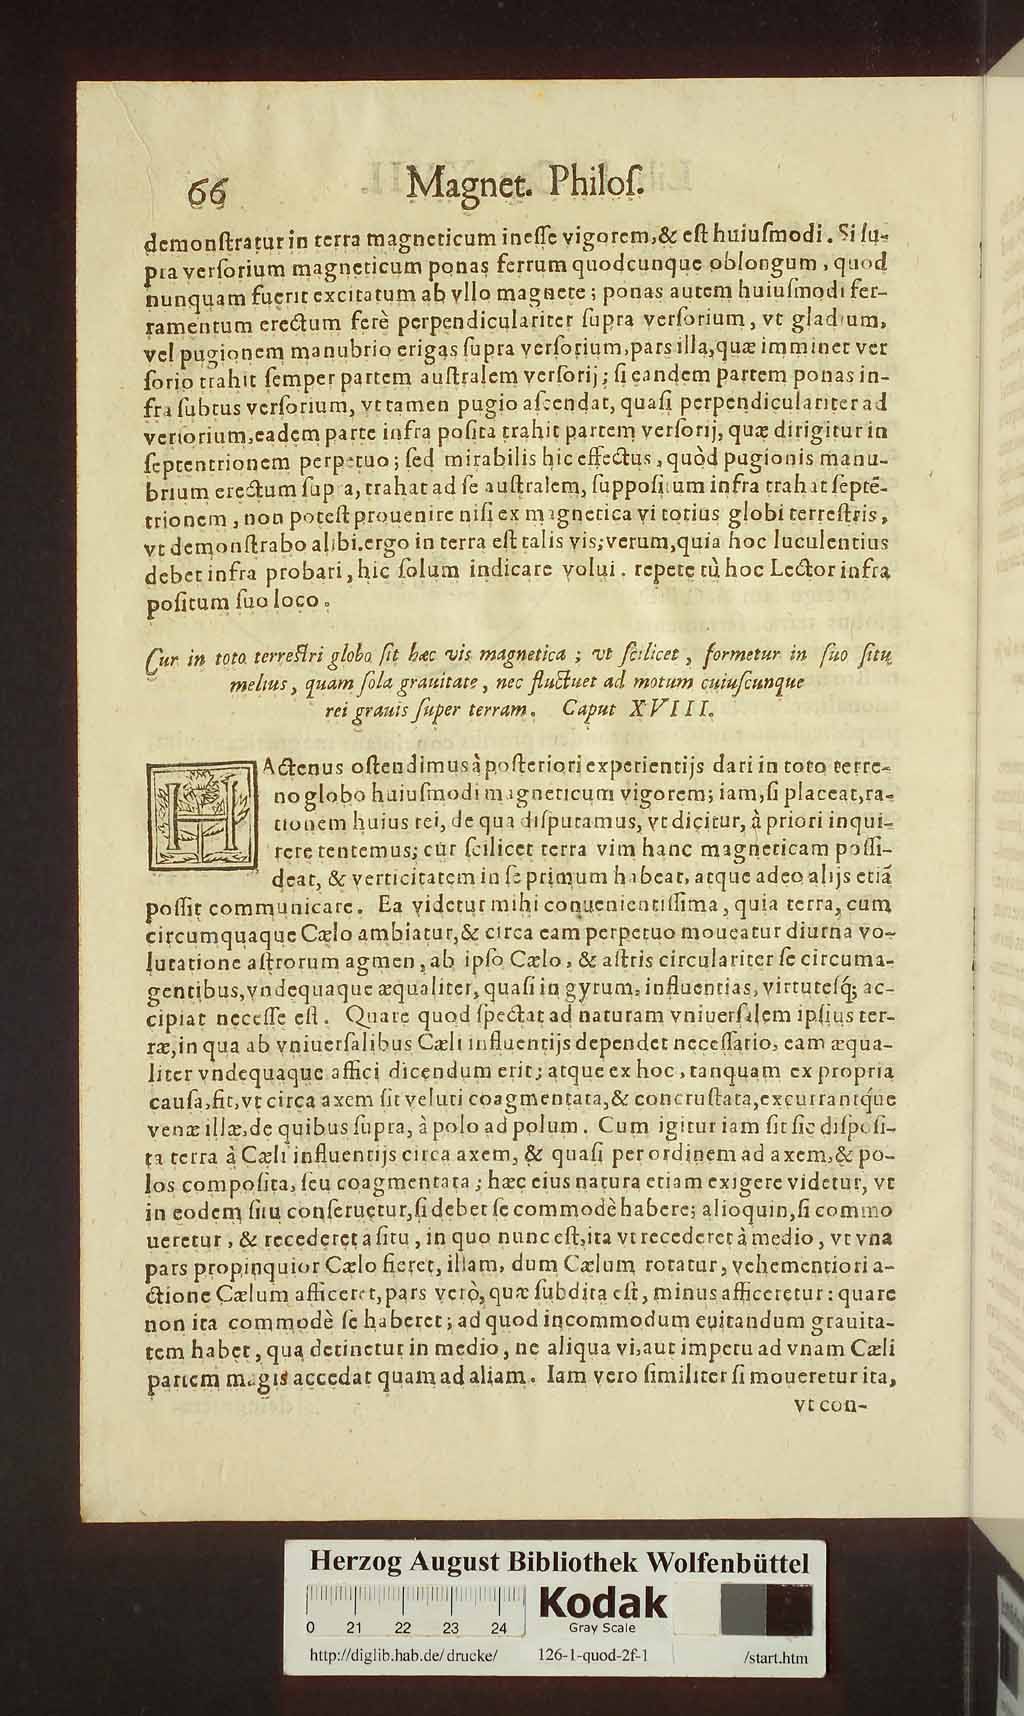 66 Magnet. Philoſ.
demonſtratur in terra magneticum ineſſe vigorem, & eſt huiuſmodi. Si ſu-
pra verſorium magneticum ponas ferrum quodcunque oblongum, quod
nunquam fuerit excitatum ab vllo magnete; ponas autem huiuſmodi fer-
ramentum erectum ferè perpendiculariter ſupra verſorium, vt gladium,
vel pugionem manubrio erigas ſupra verſorium, pars illa, quæ imminet ver
ſorio trahit ſemper partem auſtralem verſorij; ſi eandem partem ponas in-
fra ſubtus verſorium, vt tamen pugio aſcendat, quaſi perpendiculariter ad
verſorium, eadem parte infra poſita trahit partem verſorij, quæ dirigitur in
ſeptentrionem perpetuo; ſed mirabilis hic effectus, quòd pugionis manu-
brium erectum ſupra, trahat ad ſe auſtralem, ſuppoſitum infra trahat ſeptẽ-
trionem, non poteſt prouenire niſi ex magnetica vi totius globi terreſtris,
vt demonſtrabo alibi. ergo in terra eſt talis vis; verum, quia hoc luculentius
debet infra probari, hic ſolum indicare volui. repete tù hoc Lector infra
poſitum ſuo loco.
Cur in toto terreſtri globo ſit hæc vis magnetica; vt ſcilicet, formetur in ſuo ſitu
melius, quam ſola grauitate, nec fluctuet ad motum cuiuſcunque
rei grauis ſuper terram. Caput XVIII.
HActenus oſtendimus à poſteriori experientijs dari in toto terre-
no globo huiuſmodi magneticum vigorem; iam, ſi placeat, ra-
tionem huius rei, de qua diſputamus, vt dicitur, à priori inqui-
rere tentemus; cur ſcilicet terra vim hanc magneticam poſſi-
deat, & verticitatem in ſe primum habeat, atque adeo alijs etiã
poſſit communicare. Ea videtur mihi conuenientiſſima, quia terra, cum
circumquaque Cælo ambiatur, & circa eam perpetuo moueatur diurna vo-
lutatione aſtrorum agmen, ab ipſo Cælo, & aſtris circulariter ſe circuma-
gentibus, vndequaque æqualiter, quaſi in gyrum, influentias, virtuteſq́; ac-
cipiat neceſſe eſt. Quare quod ſpectat ad naturam vniuerſalem ipſius ter-
ræ, in qua ab vniuerſalibus Cæli influentijs dependet neceſſario, eam æqua-
liter vndequaque affici dicendum erit; atque ex hoc, tanquam ex propria
cauſa, fit, vt circa axem ſit veluti coagmentata, & concruſtata, excurrantq́ue
venæ illæ, de quibus ſupra, à polo ad polum. Cum igitur iam ſit ſic diſpoſi-
ta terra à Cæli influentijs circa axem, & quaſi per ordinem ad axem, & po-
los compoſita, ſeu coagmentata; hæc eius natura etiam exigere videtur, vt
in eodem ſitu conſeruetur, ſi debet ſe commodè habere; alioquin, ſi commo
ueretur, & recederet a ſitu, in quo nunc eſt, ita vt recederet à medio, vt vna
pars propinquior Cælo fieret, illam, dum Cælum rotatur, vehementiori a-
ctione Cælum afficeret, pars verò, quæ ſubdita eſt, minus afficeretur: quare
non ita commodè ſe haberet; ad quod incommodum euitandum grauita-
tem habet, qua detinetur in medio, ne aliqua vi, aut impetu ad vnam Cæli
partem magis accedat quam ad aliam. Iam vero ſimiliter ſi moueretur ita,
vt con-
Herzog August Bibliothek Wolfenbüttel
0 21 22 23 24
Kodak
Gray Scale
http://diglib.hab.de/drucke/ 126-1-quod-2f-1 /start.htm